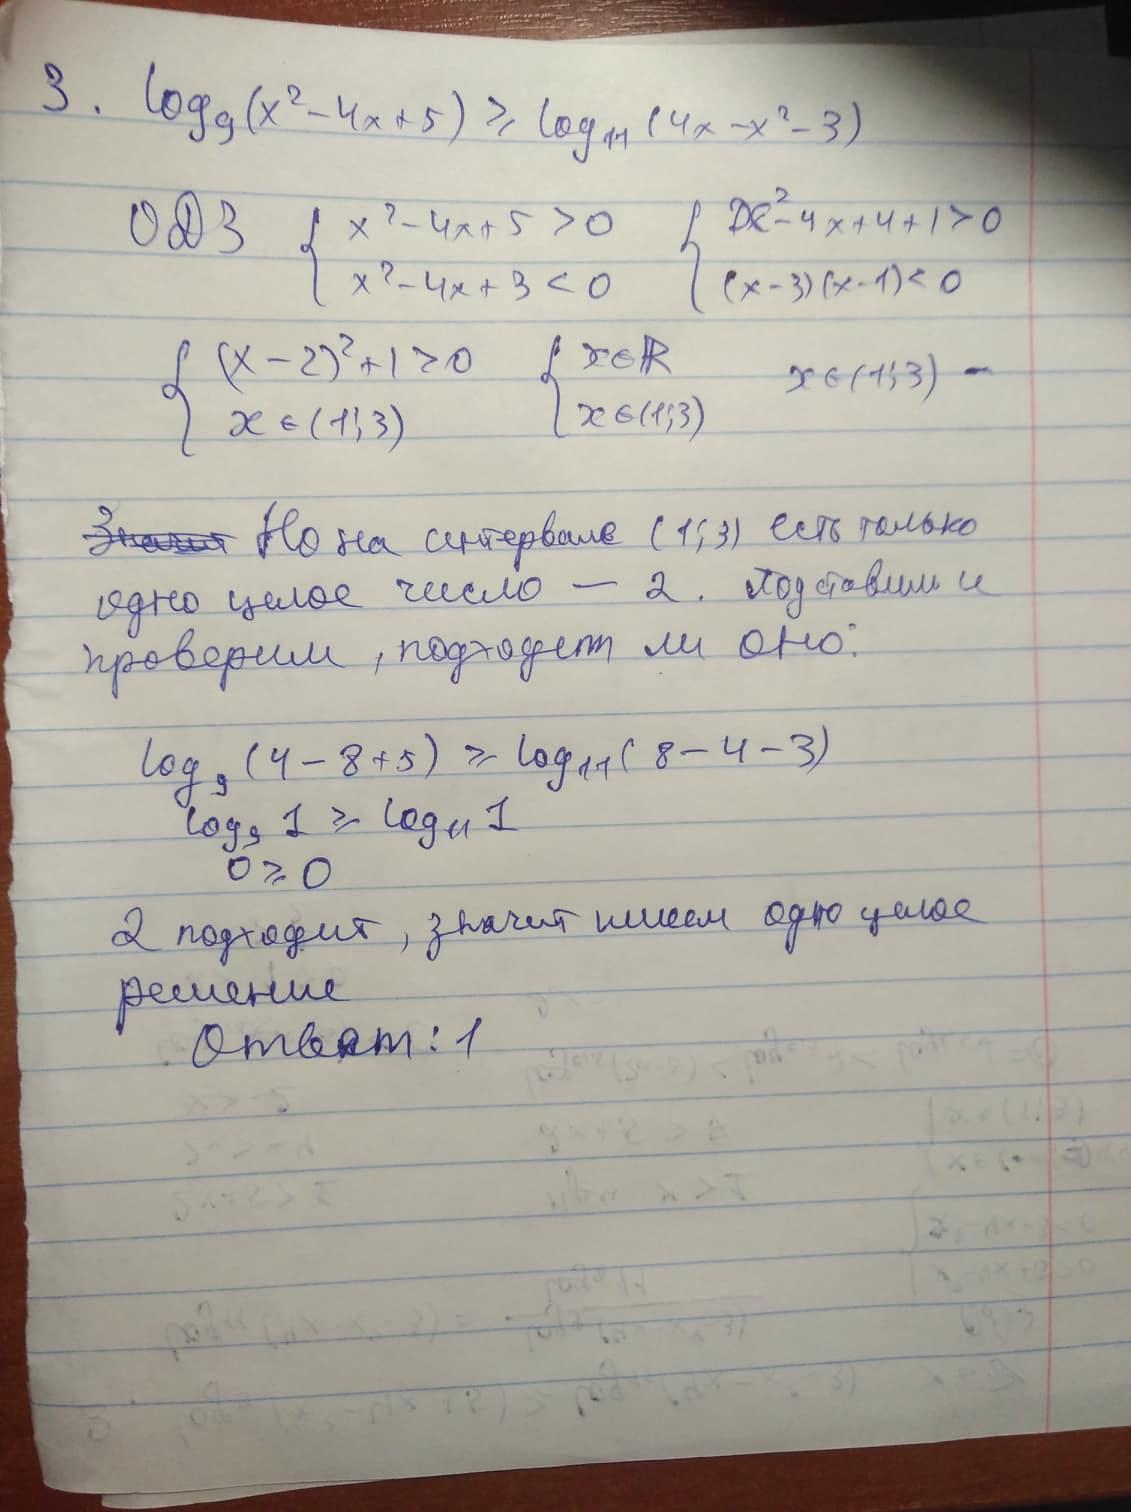 3. log₉(x²-4x+5) ≥ log₁₁(4x-x²-3)
ОДЗ { x²-4x+5>0 { x²-4x+4+1>0
x²-4x+3<0 (x-3)(x-1)<0
{ (x-2)²+1>0 { x∈ℝ x∈(1;3) -
x∈(1;3) x∈(1;3)
Но на интервале (1;3) есть только
одно целое число — 2. Подставим и
проверим, подходит ли оно:
log₉(4-8+5) ≥ log₁₁(8-4-3)
log₉1 ≥ log₁₁1
0≥0
2 подходит, значит имеем одно целое
решение
Ответ: 1